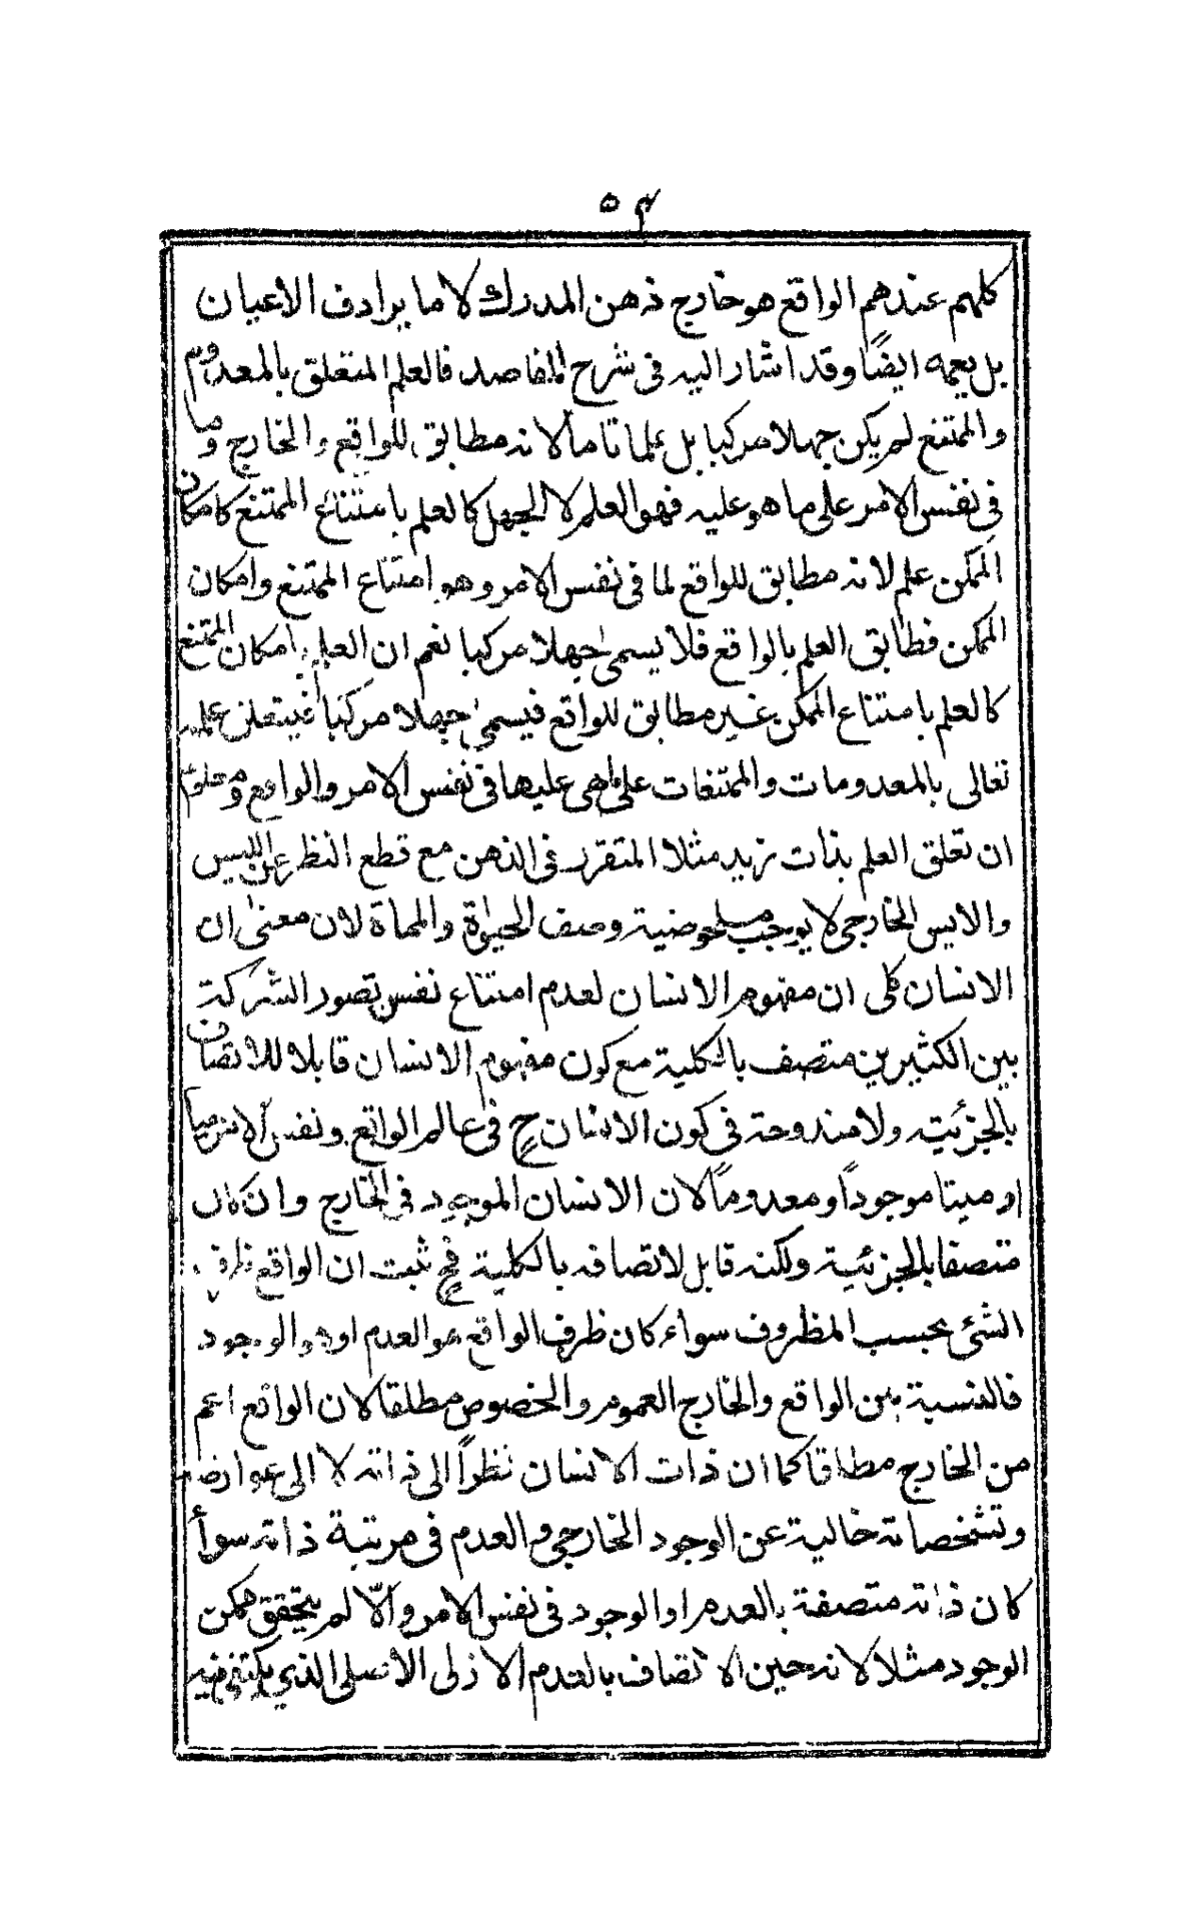 ٥٤
كلهم عندهم الواقع هو خارج ذهن المدرك لا ما يرادف الأعيان
بل يعمه ايضًا وقد اشار اليه فى شرح المقاصد فالعلم المتعلق بالمعدوم
والممتنع لم يكن جهلا مركبا بل علما تاما لانه مطابق للواقع والخارج وما
فى نفس الامر على ما هو عليه فهو العلم لا الجهل كالعلم بامتناع الممتنع كامكان
الممكن علم لانه مطابق للواقع لما فى نفس الامر وهو امتناع الممتنع وامكان
الممكن فطابق العلم بالواقع فلا يسمى جهلا مركبا نعم ان العلم امكان الممتنع
كالعلم بامتناع الممكن غير مطابق للواقع فيسمى جهلا مركبا فيتعلق علمه
تعالى بالمعدومات والممتنعات على ماهى عليها فى نفس الامر والواقع ومعلوم
ان تعلق العلم بذات زيد مثلا المتقرر فى الذهن مع قطع النظر عن الليس
والايس الخارجى لا يوجب وصف الحيوٰة والمماة لان معنى ان
الانسان كلى ان مفهوم الانسان لعدم امتناع نفس تصور الشركة
بين الكثيرين متصف بالكلية مع كون مفهوم الانسان قابلا للاتصاف
بالجزئية ولا مندوحة فى كون الانسان ح فى عالم الواقع ونفس الامر حيا
او ميتا موجوداً ومعدوماً لان الانسان الموجود فى الخارج وان كان
متصفا بالجزئية ولكنه قابل لاتصافه بالكلية فح ثبت ان الواقع ظرف
الشئ بحسب المظروف سواء كان ظرف الواقع هو العدم او هو الوجود
فالنسبة بين الواقع والخارج العموم والخصوص مطلقا لان الواقع اعم
من الخارج مطلقا كما ان ذات الانسان نظراً الى ذاته لا الى عوارضه
وتشخصاته خالية عن الوجود الخارجى والعدم فى مرتبة ذاته سوأ
كان ذاته متصفة بالعدم او الوجود فى نفس الامر والّا لم يتحقق ممكن
الوجود مثلا لانه حين الاتصاف بالعدم الازلى الاصلى الذي يكتفى فيه